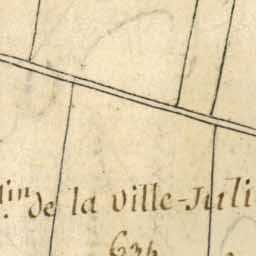 lin de la ville-Juli
634